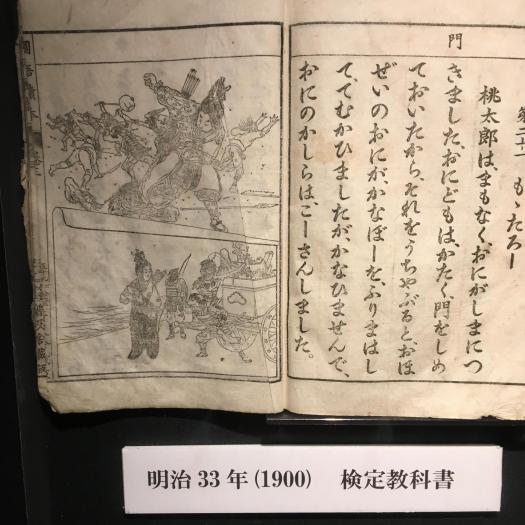 門
もゝたろー
桃太郎は、まもなく、おにがしまにつ
きました、おにどもは、かたく、門をしめ
ておいたから、それをうちやぶると、おほ
ぜいのおにがかなぼーを、ふりまはし
て、てむかひましたが、かなひませんで、
おにのかしらは、こーさんしました。
明治 33 年 (1900) 検定教科書